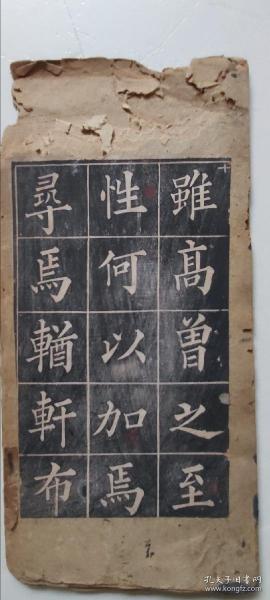 雖高曽之至
性何以加焉
尋焉輶軒布
孔夫子旧书网